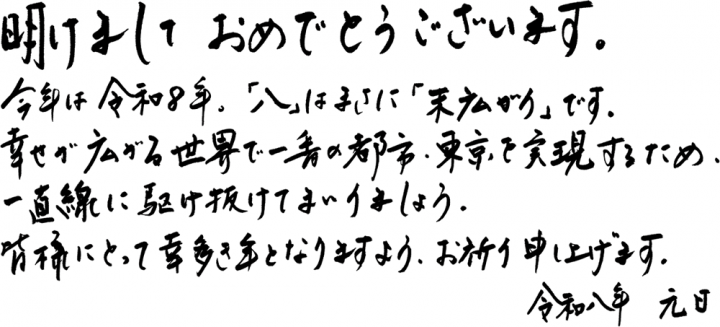 明けまして おめでとうございます。
今年は令和8年。「八」はまさに「末広がり」です。
幸せが広がる世界で一番の都市・東京を実現するため、
一直線に駆け抜けてまいりましょう。
皆様にとって幸多き年となりますよう、お祈り申し上げます。
令和八年 元日